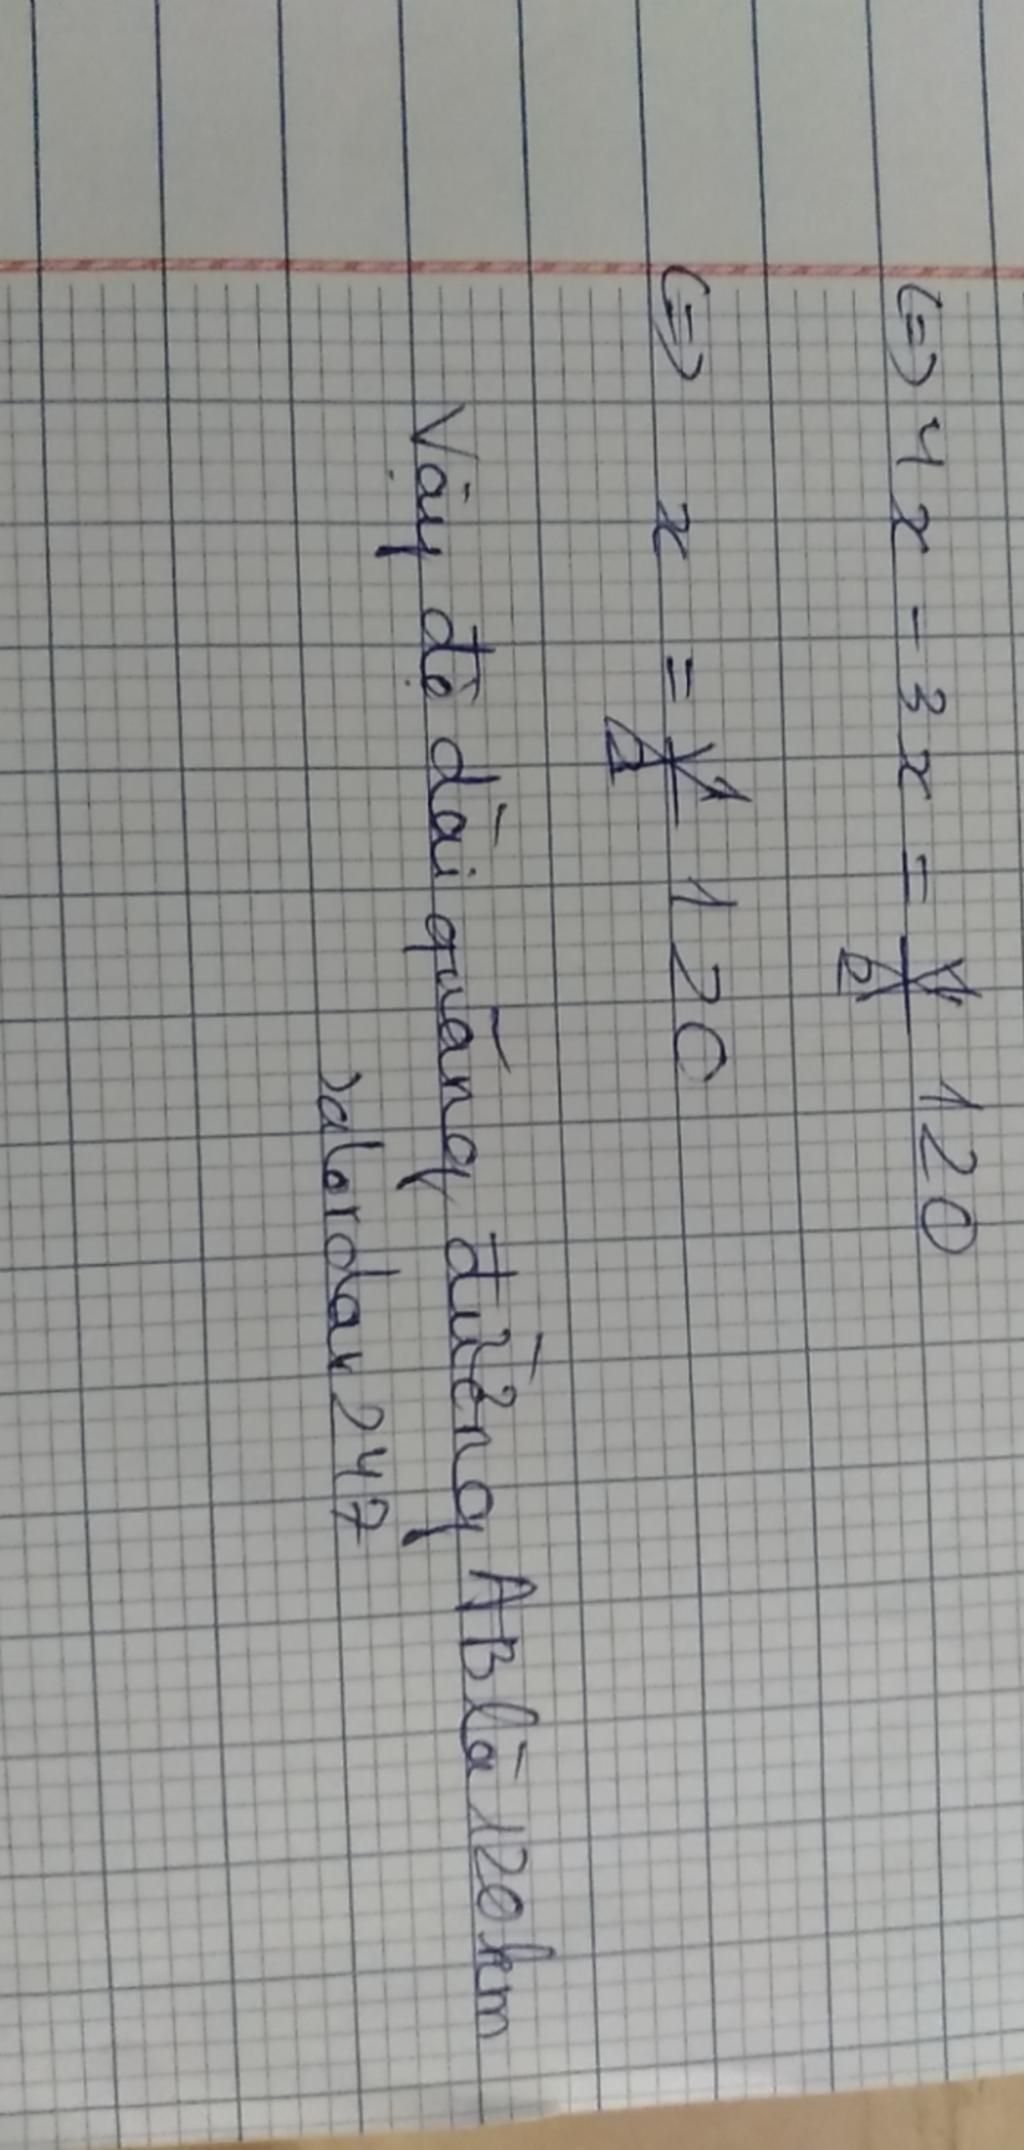 (=) 4x - 3x = 120
(=) x = 120
Vậy độ dài quãng đường AB là 120km
valordar247